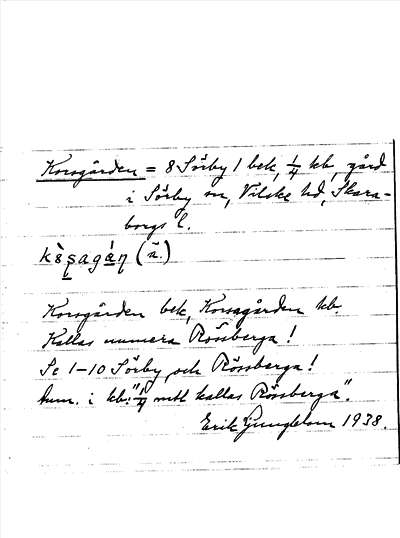 Korsgården = 8 Sörby 1 bek, 1/4 kb, gård
i Sörby sn, Vilske hd, Skara-
borgs l.
(ä.)
Korsgården bek, Korsagården kb.
Kallas numera Rössberga!
Se 1-10 Sörby och Rössberga!
Anm. i kb: "1/4 mtl kallas Rössberga".
Erik Ljungblom 1938.